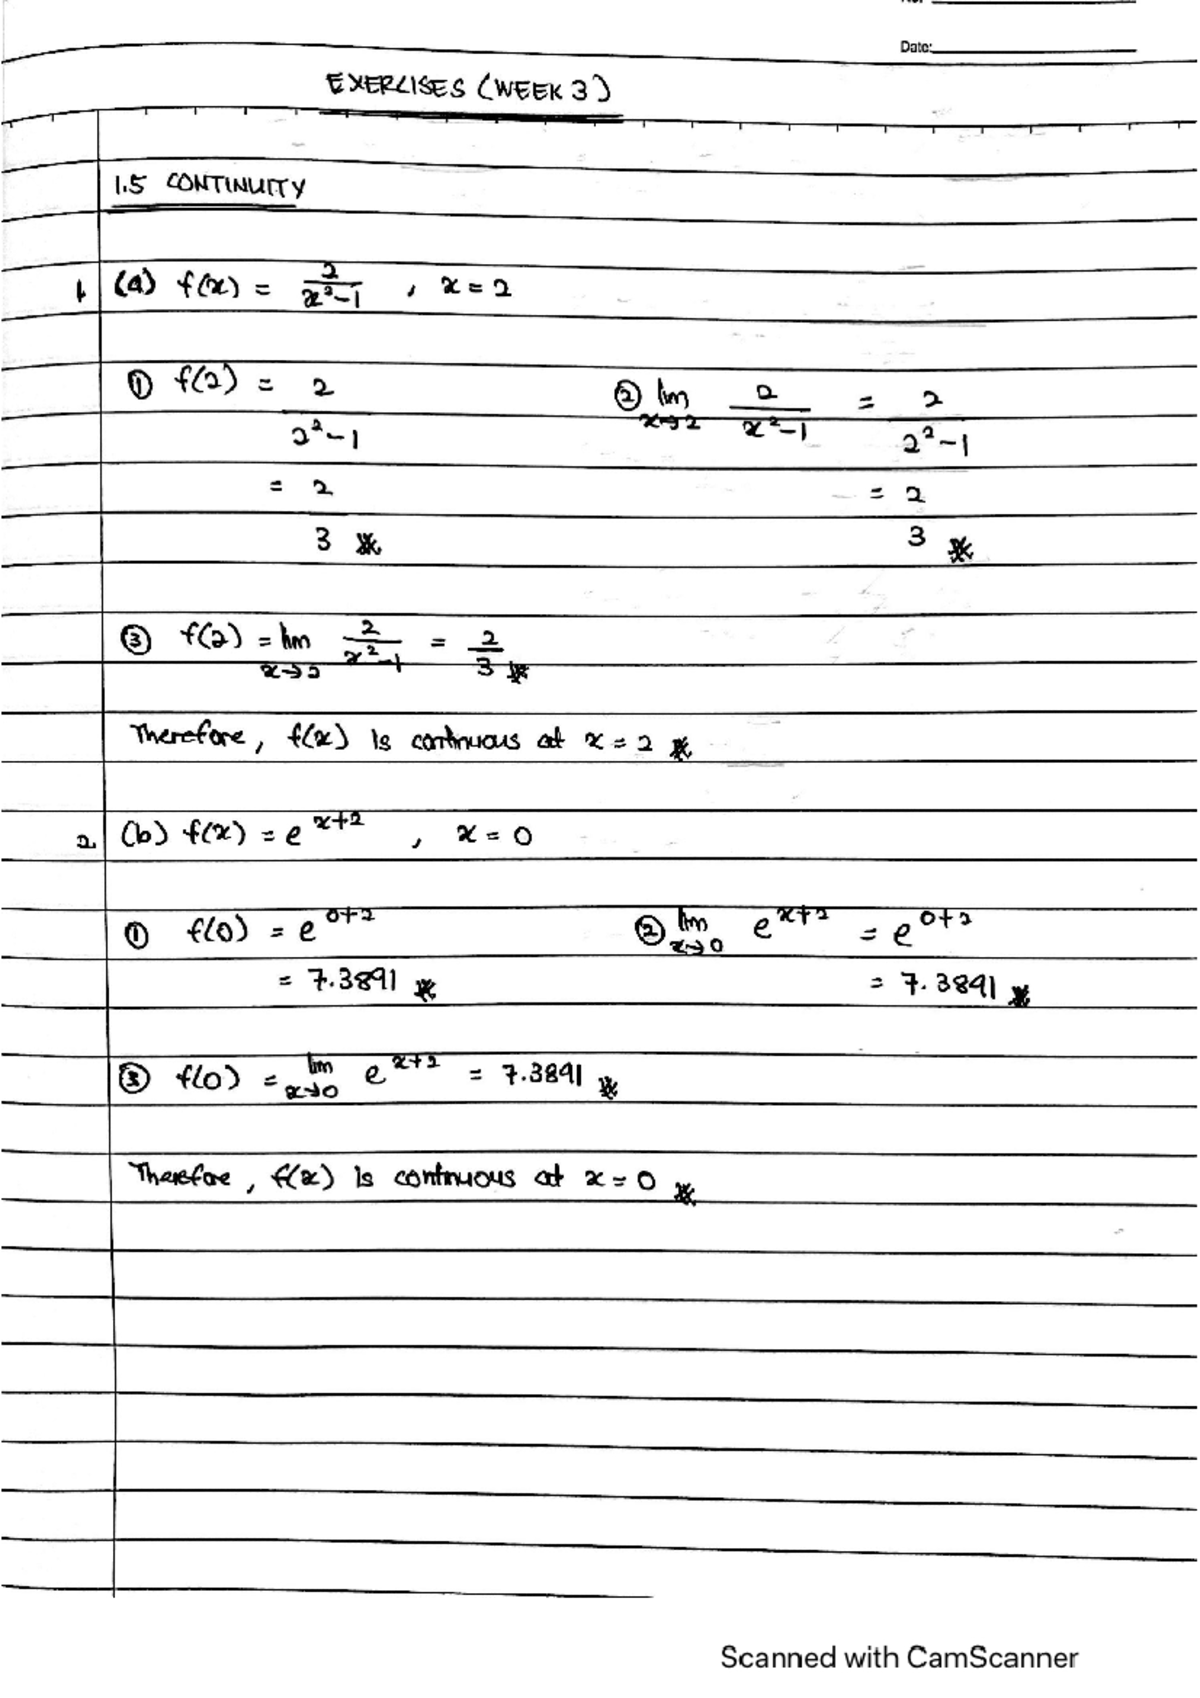 Date:
EXERCISES (WEEK 3)
1.5 CONTINUITY
1. (a) f(x) = 2/(x²-1) , x = 2
① f(2) = 2/(2²-1)
= 2/3
② lim x→2 2/(x²-1) = 2/(2²-1)
= 2/3
③ f(2) = lim x→2 2/(x²-1) = 2/3
Therefore, f(x) is continuous at x = 2
2. (b) f(x) = e^(x+2) , x = 0
① f(0) = e^(0+2)
= 7.3891
② lim x→0 e^(x+2) = e^(0+2)
= 7.3891
③ f(0) = lim x→0 e^(x+2) = 7.3891
Therefore, f(x) is continuous at x = 0
Scanned with CamScanner